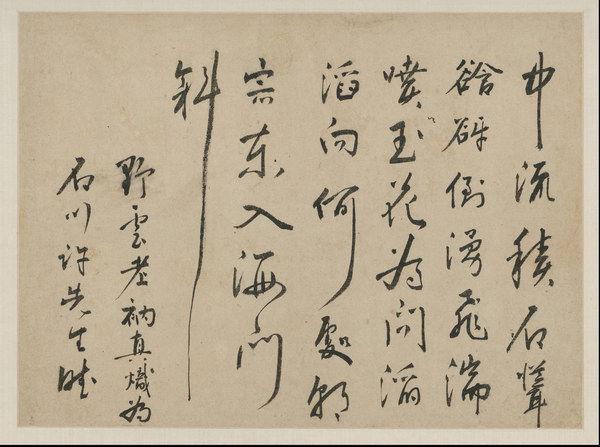 中流積石聳
谽谺倒瀉飛湍
噴玉花為問滔
滔向何處朝
宗東入海門
斜
野雲老衲真熾為
石川許先生賦